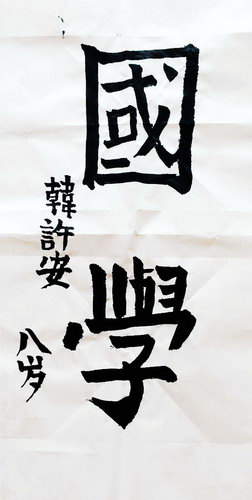 國學
韓許安 八岁